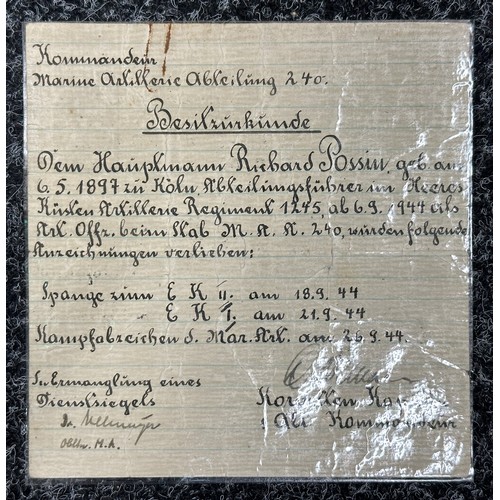 Kommandeur
Marine Artillerie Abteilung 240.
Besitzurkunde
Dem Hauptmann Richard Possin, geb. am
6.5.1897 zu Köln, Abteilungsführer im Heeres
Küsten Artillerie Regiment 1245, ab 6.9.1944 als
Art. Offz. beim Stab M. A. A. 240, wurden folgende
Auszeichnungen verliehen:
Spange zum E K II. am 18.9.44
" E K I. am 21.9.44
Kampfabzeichen d. Mar. Art. am 26.9.44.
In Ermanglung eines
Dienstsiegels
Korv. Kpt.
Kommandeur
Dr.
Oblt. M.A.